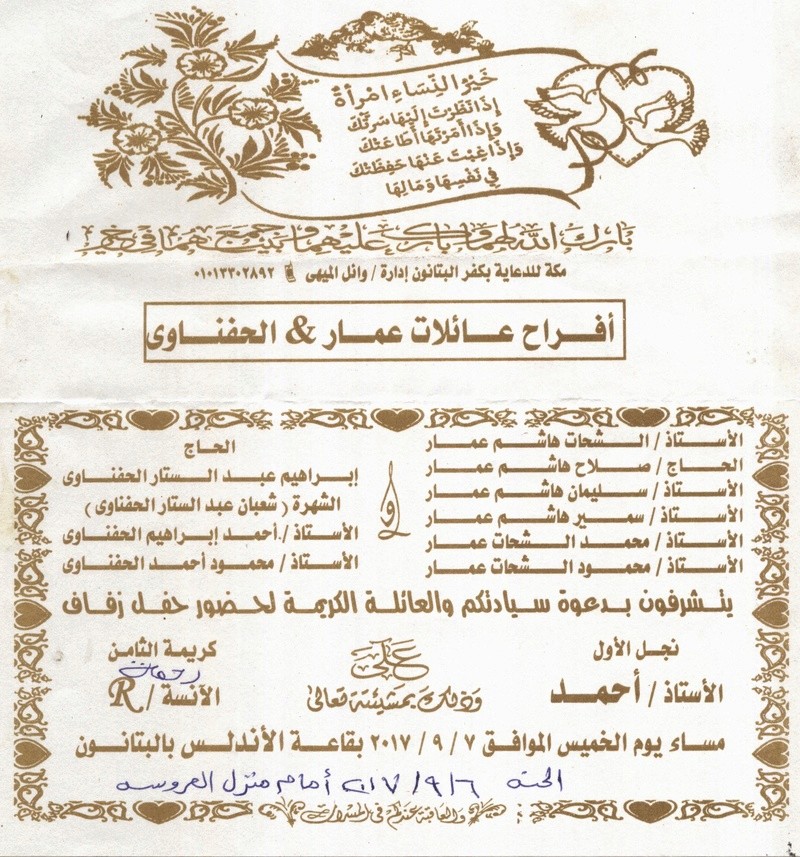 خَيْرُ النِّسَاءِ امْرَأَةٌ
إِذَا نَظَرْتَ إِلَيْهَا سَرَّتْكَ
وَإِذَا أَمَرْتَهَا أَطَاعَتْكَ
وَإِذَا غِبْتَ عَنْهَا حَفِظَتْكَ
فِي نَفْسِهَا وَمَالِهَا
بارك الله لهما وبارك عليهما وجمع بينهما في خير
مكة للدعاية بكفر البتانون إدارة / وائل الميهى ٠١٠١٣٣٠٢٨٩٢
أفراح عائلات عمار & الحفناوى
الأستاذ / الشحات هاشم عمار
الحاج / صلاح هاشم عمار
الأستاذ / سليمان هاشم عمار
الأستاذ / سمير هاشم عمار
الأستاذ / محمد الشحات عمار
الأستاذ / محمود الشحات عمار
و
الحاج
إبراهيم عبد الستار الحفناوى
الشهرة ( شعبان عبد الستار الحفناوى )
الأستاذ / أحمد إبراهيم الحفناوى
الأستاذ / محمود أحمد الحفناوى
يتشرفون بدعوة سيادتكم والعائلة الكريمة لحضور حفل زفاف
نجل الأول
الأستاذ / أحمد
على
وذلك بمشيئة تعالى
كريمة الثامن
الآنسة / R
مساء يوم الخميس الموافق ٧ / ٩ / ٢٠١٧ بقاعة الأندلس بالبتانون
الحنه ٢٠١٧/٩/٦ أمام منزل العروسه
والعاقبة عندكم في المسرات